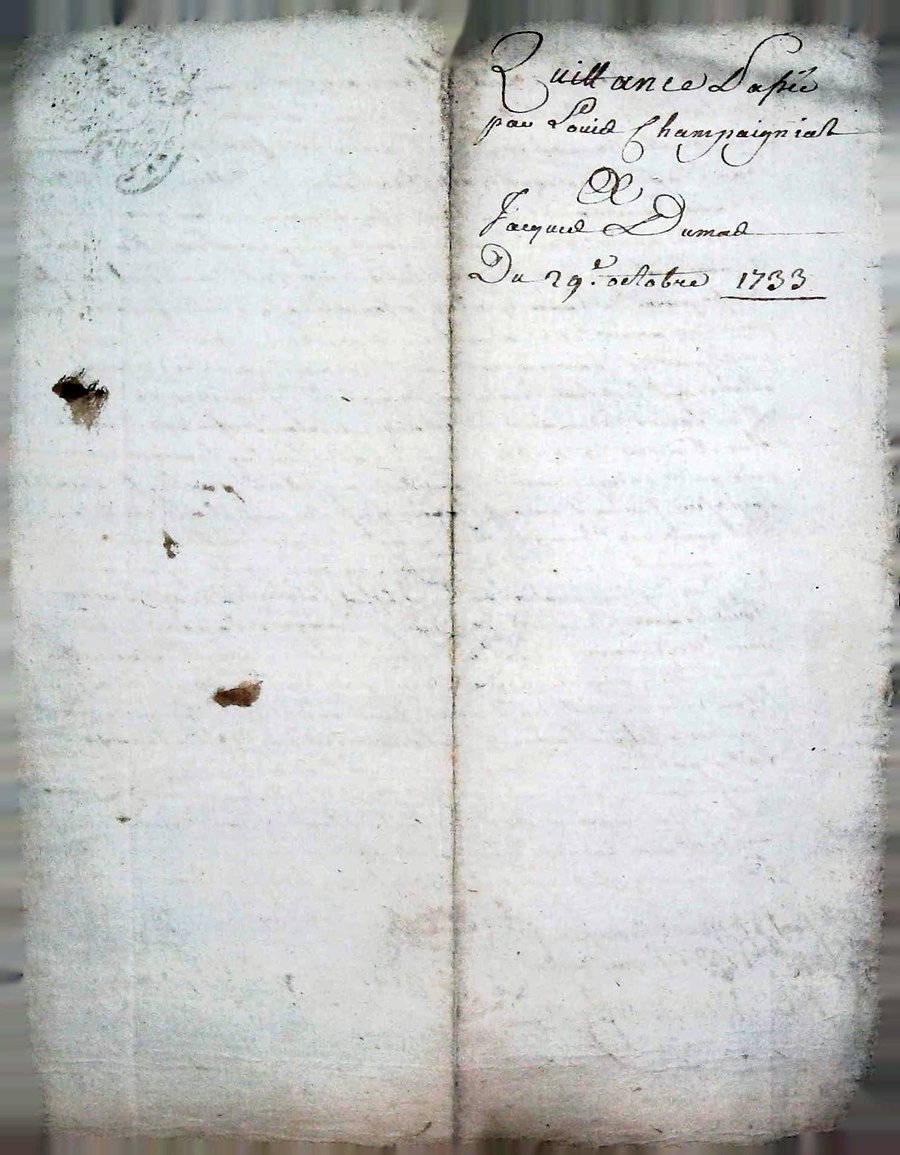 Quittance Passée
par Louis Champaigniat
A
Jacques Dumas
Du 29.e octobre 1733